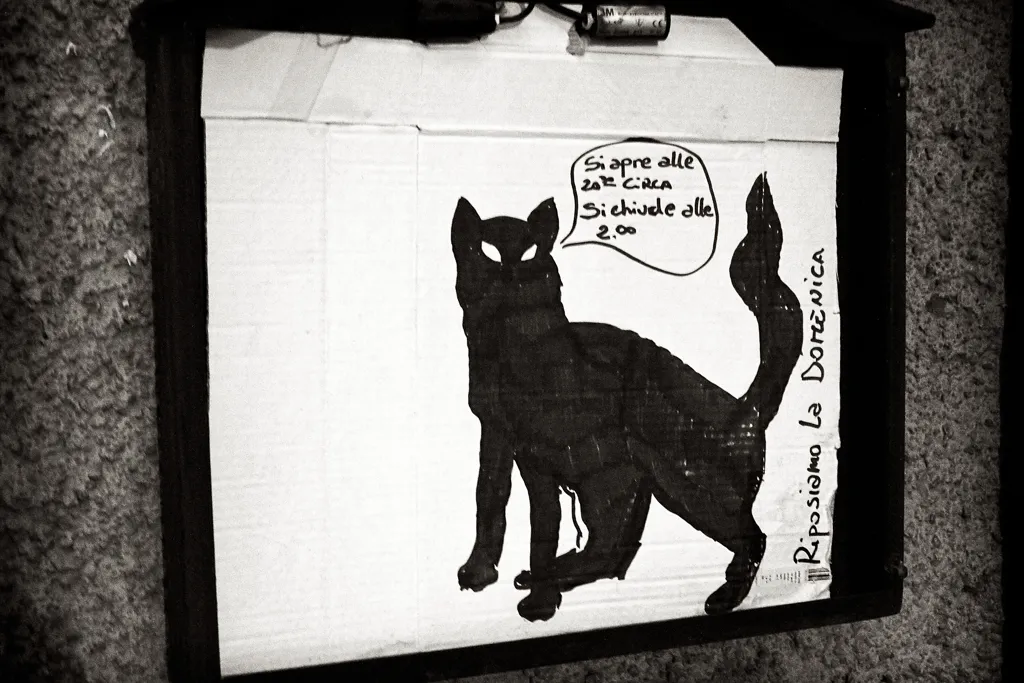 Si apre alle
20:00 CIRCA
Si chiude alle
2.00
RIPOSIAMO La DOMENICA